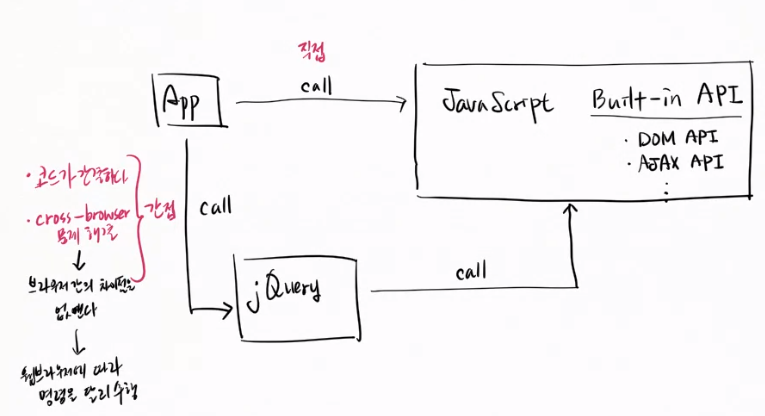 직접
call
App
JavaScript
Built-in API
· DOM API
· AJAX API
⋮
· 코드가 간결하다
· cross-browser
문제 해결
간접
call
브라우저 간의 차이점을
없앤다
웹브라우저에 따라
명령을 달리 수행
jQuery
call